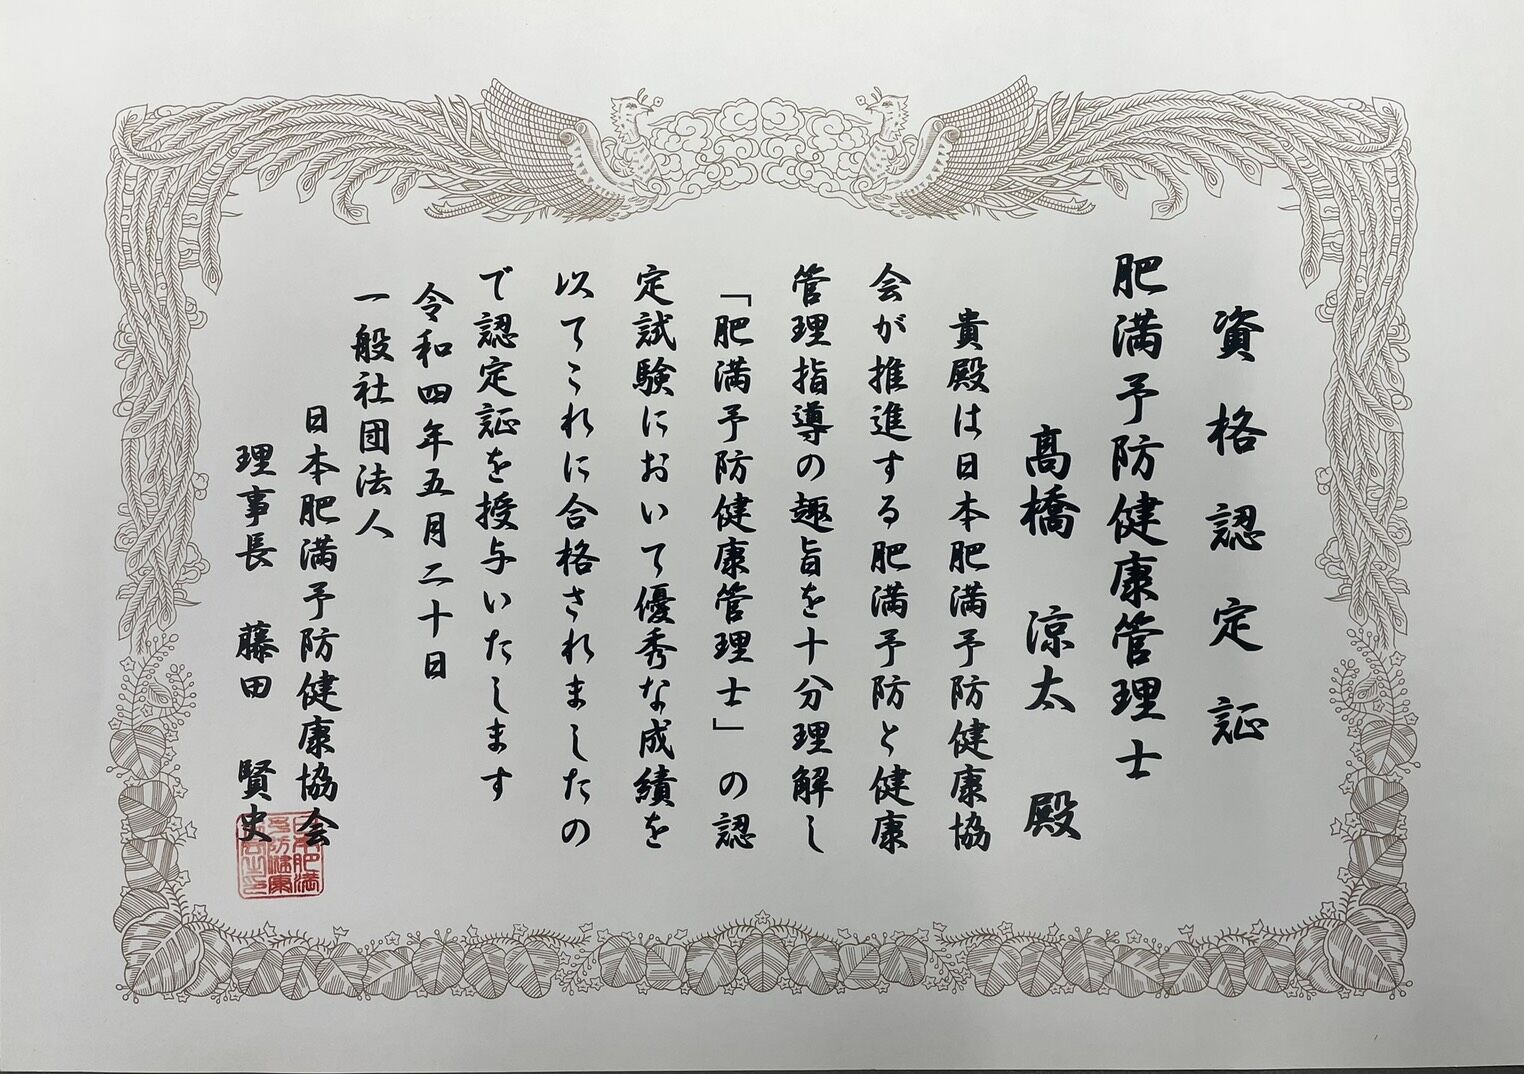 資格認定証
肥満予防健康管理士
髙橋 涼太 殿
貴殿は日本肥満予防健康協
会が推進する肥満予防と健康
管理指導の趣旨を十分理解し
「肥満予防健康管理士」の認
定試験において優秀な成績を
以てこれに合格されましたの
で認定証を授与いたします
令和四年五月二十日
一般社団法人
日本肥満予防健康協会
理事長 藤田 賢史